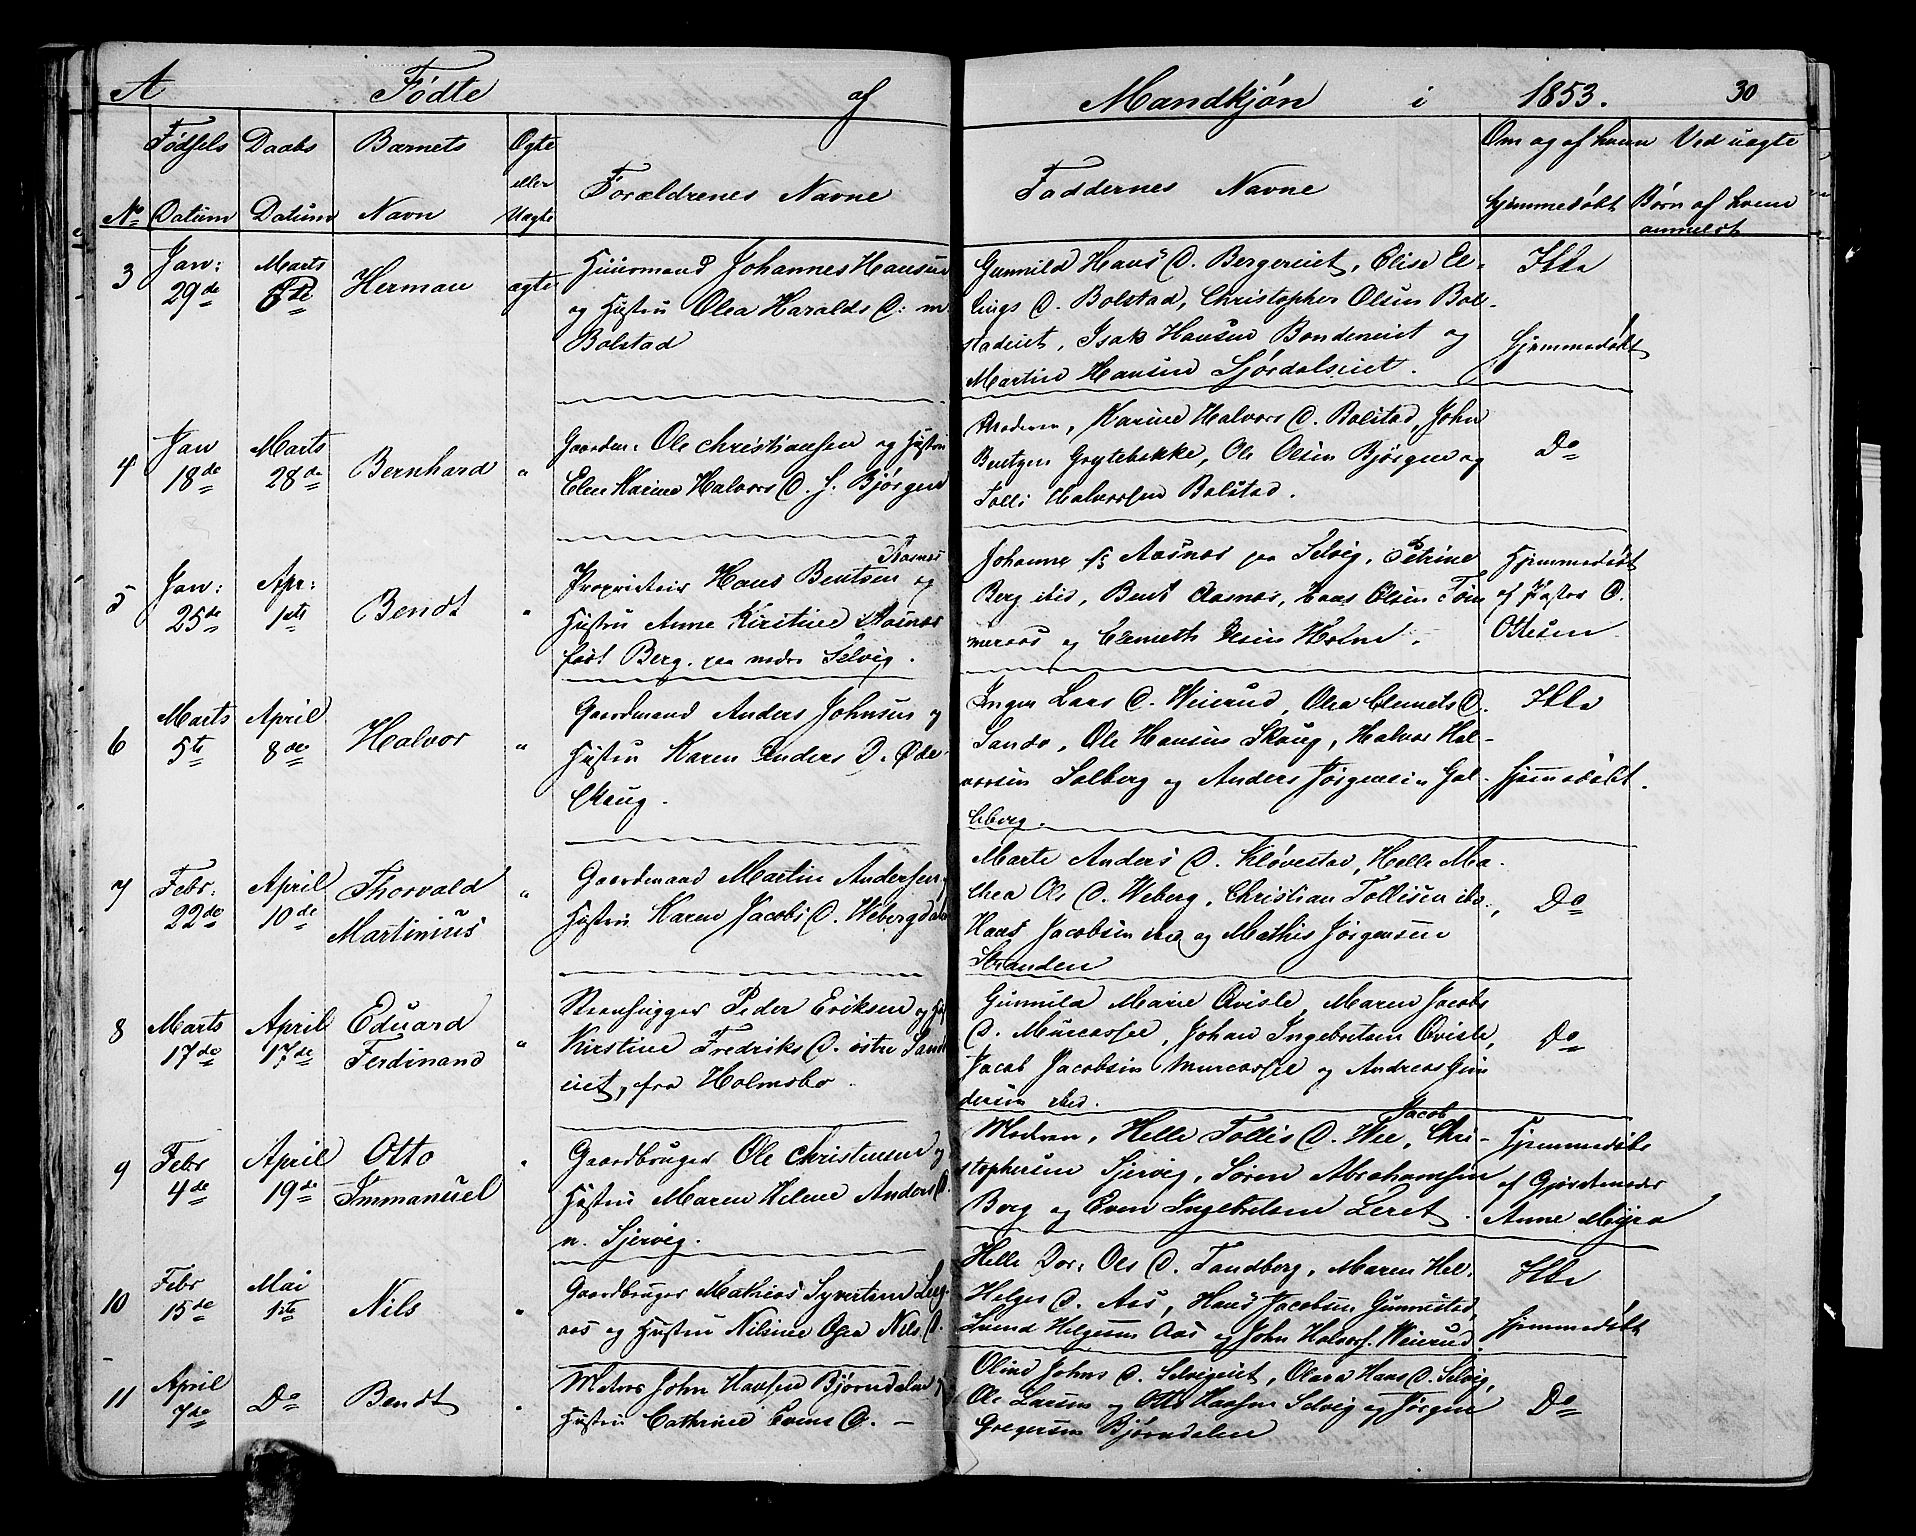 A Fødte af Mandkjøn i 1853. 30
No Fødsels Datum Daabs Datum Barnets Navn Ægte eller Uægte Forældrenes Navne Faddernes Navne Om og af hvem hjemmedøbt Ved uægte Børn af hvem anmeldt
3 Jan: 29de Marts 6te Herman ægte
Huusmand Johannes Hansen
og Hustru Olea Haralds D:
Bolstad
Gunnild Hans D. Bergereiet, Elise El-
lings D. Bolstad, Christopher Olsen Bol-
stadeiet, Isak Hansen Bondeneiet og
Martin Hansen Sjørdalseiet.
Ikke
hjemmedøbt
4 Jan 18de Marts 28de Bernhard "
Gaardm. Ole Christiansen og Hustru
Elen Karine Halvors D. Bjørgen
Moderen, Karine Halvors D. Bolstad, John
Bentzen Grytebakke, Ole Olsen Bjørgen og
Tolli Halvorsen Bolstad.
Do
5 Jan: 25de Apr: 1ste Bendt "
Proprietair Hans Bentsen Aasnes og
Hustru Anne Kirstine Aasnes
født Berg. paa nedre Selvig.
Johanne Aasnes paa Selvig, Petrine
Berg ibid, Bent Aasnes, Olsen Føn
meraas og Clemeth Olsen Holm.
Hjemmedøbt
af Pastor D.
Ottesen
6 Marts 5te April 8de Halvor "
Gaardmand Anders Johnsen og
Hustru Karen Anders D. Øde-
Skoug.
Inger Lars D. Weierud, Olea Clemets D.
Sando, Ole Hansen Skoug, Halvor Hal-
vorsen Solberg og Anders Jørgensen Gal-
leberg.
Ikke
hjemmedøbt.
7 Febr. 22de April 10de Thorvald Martinius "
Gaardmand Martin Andersen
Hustru Karen Jacobs D. Webergdal
Marte Anders D. Kløvestad, Helle Ma-
thea Ols D. Weberg, Christian Tollisen ibd.,
Hans Jacobsen ibd og Mathis Jørgensen
Stranden
Do
8 Marts 17de April 17de Eduard Ferdinand "
Steenhugger Peder Eriksen og
Kirstine Fredriks D. østre Sand
eiet, fra Holmsbo.
Gunnild Marie Qvisle, Maren Jacobs
D. Murcassee, Johan Ingebretsen Qvisle,
Jacob Jacobsen Murcassee og Andreas Gun
dersen ibid.
Do
9 Febr 4de April 19de Otto Immanuel "
Gaardbruger Ole Christensen og
Hustru Maren Helene Anders D.
n. Sjervig.
Moderen, Helle Tollis D. Wee, Jacob Chri-
stophersen Sjervig, Søren Abrahamsen
Berg og Even Ingebretsen Leret.
Hjemmedøbt
af Gjordemoder
Anne Myra
10 Febr 15de Mai 1ste Nils "
Gaardbruger Mathias Syvertsen Leeg-
aas og Hustru Nilsine Olea Nils D.
Helle Dor. Ols D. Sandberg, Maren Hel.
Helges D. Aas, Hans Jacobsen Gunnestad,
Svend Helgesen Aas og John Halvors. Weierud.
Ikke
hjemmedøbt
11 April 7de Do Bendt "
Matros John Hansen Bjørndalen og
Hustru Cathrine Evens D. —
Oline Johns D. Selvigeiet, Olava Hans D. Selvig,
Ole Larsen og Otto Hansen Selvig og Jørgen
Gregersen Bjørndalen
Do